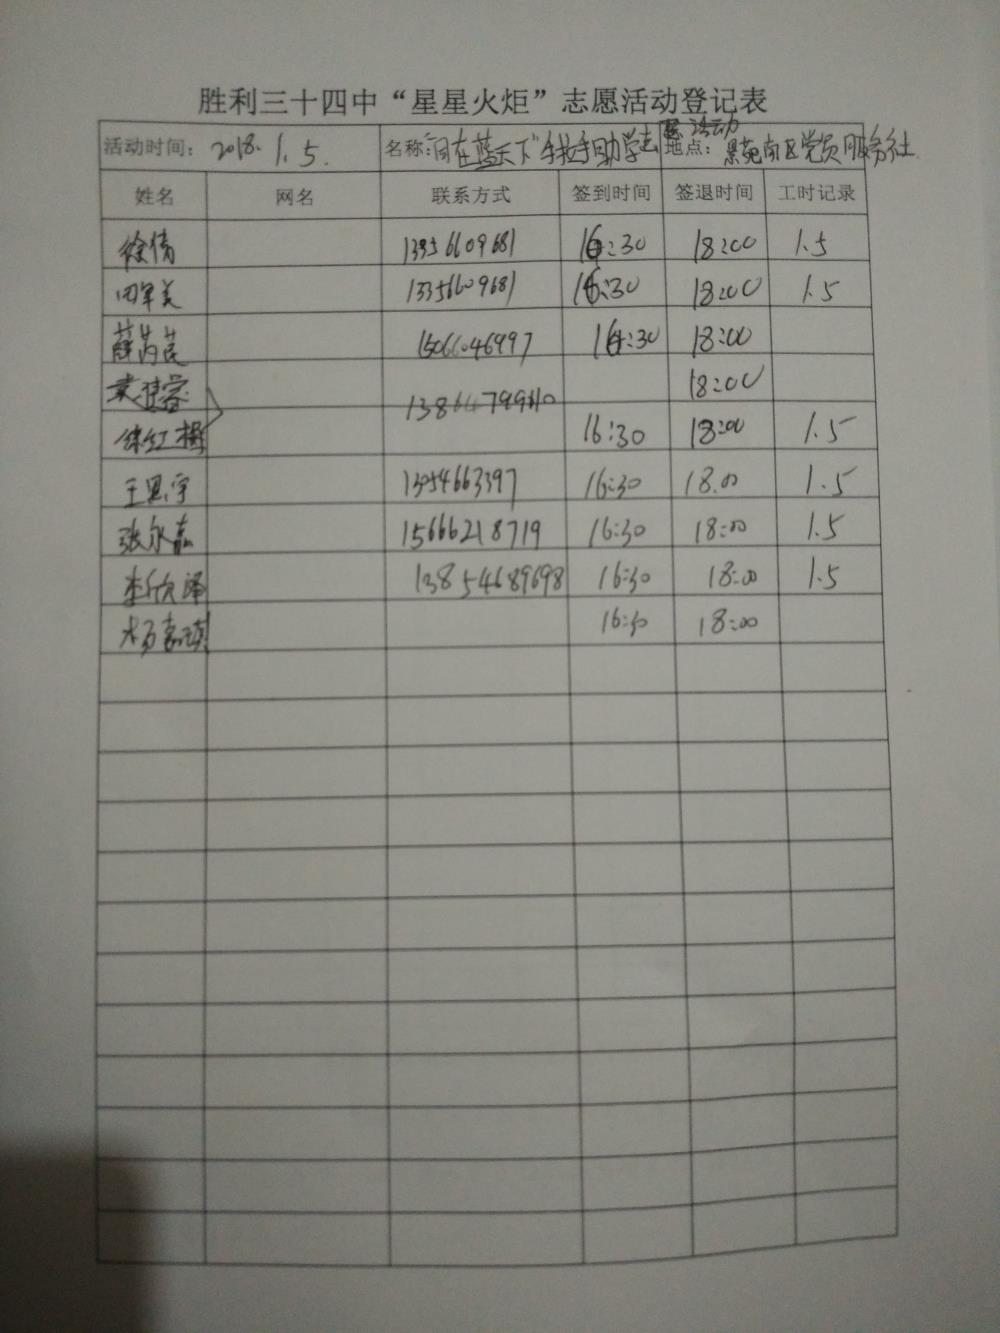 胜利三十四中“星星火炬”志愿活动登记表
活动时间：2018.1.5. 名称：同在蓝天下手拉手助学志愿活动 地点：景苑南区党员服务社
姓名 网名 联系方式 签到时间 签退时间 工时记录
徐倩 16:30 18:00 1.5
田军美 13356609681 16:30 18:00 1.5
薛芮芪 15066046997 16:30 18:00
18:00
徐红梅 16:30 18:00 1.5
王思宇 13954663397 16:30 18.00 1.5
张永嘉 15666218719 16:30 18:00 1.5
李欣泽 13854689698 16:30 18:00 1.5
杨嘉琪 16:30 18:00